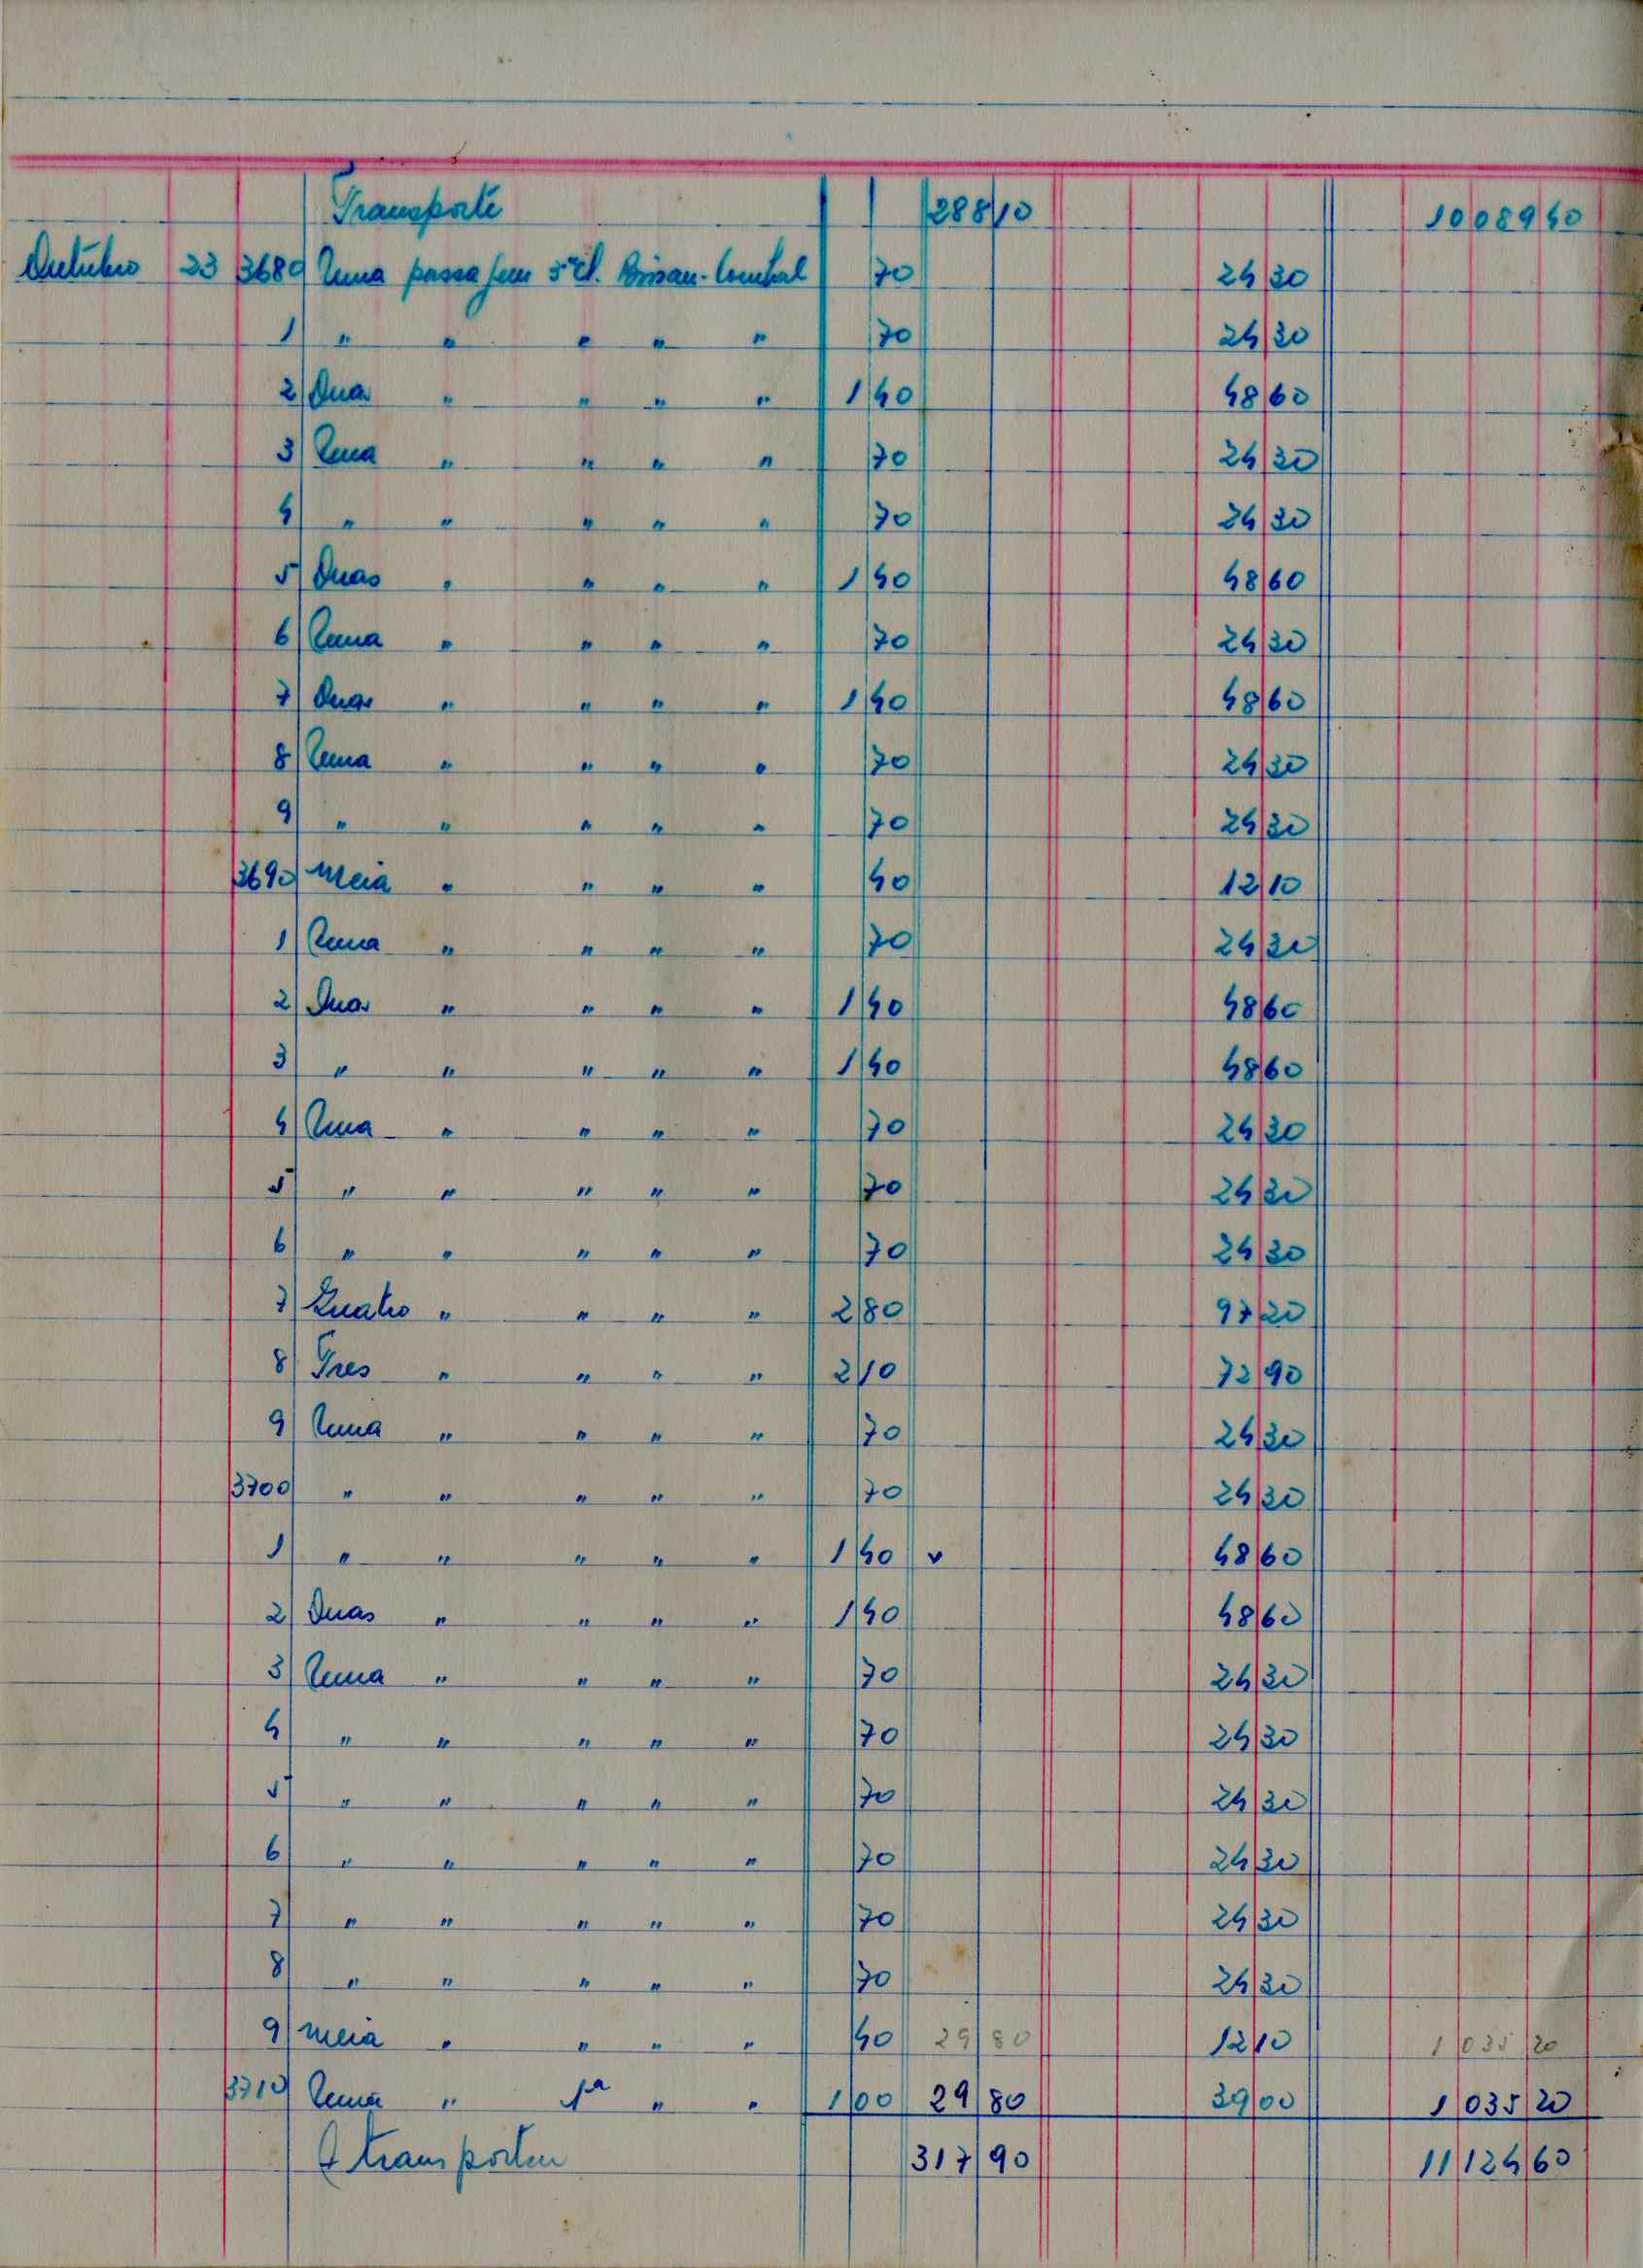 Transporte 288 10 10 089 40
Outubro 23 3680 Uma passagem 3ª cl. Bissau- 70 24 30
1 " " " " " 70 24 30
2 Duas " " " " 1 40 48 60
3 Uma " " " " 70 24 30
4 " " " " " 70 24 30
5 Duas " " " " 1 40 48 60
6 Uma " " " " 70 24 30
7 Duas " " " " 1 40 48 60
8 Uma " " " " 70 24 30
9 " " " " " 70 24 30
3690 Meia " " " " 40 12 10
1 Uma " " " " 70 24 30
2 Duas " " " " 1 40 48 60
3 " " " " " 1 40 48 60
4 Uma " " " " 70 24 30
5 " " " " " 70 24 30
6 " " " " " 70 24 30
7 Quatro " " " " 2 80 97 20
8 Tres " " " " 2 10 72 90
9 Uma " " " " 70 24 30
3700 " " " " " 70 24 30
1 " " " " " 1 40 v 48 60
2 Duas " " " " 1 40 48 60
3 Uma " " " " 70 24 30
4 " " " " " 70 24 30
5 " " " " " 70 24 30
6 " " " " " 70 24 30
7 " " " " " 70 24 30
8 " " " " " 70 24 30
9 Meia " " " " 40 29 80 12 10 1 035 20
3710 Uma " 1ª " " 1 00 29 80 39 00 1 035 20
A transportar 317 90 11 124 60